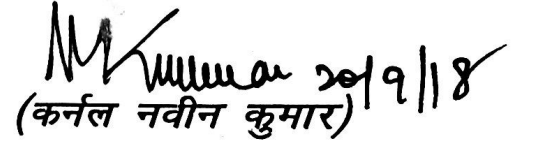 NKumar 20/9/18
(कर्नल नवीन कुमार)